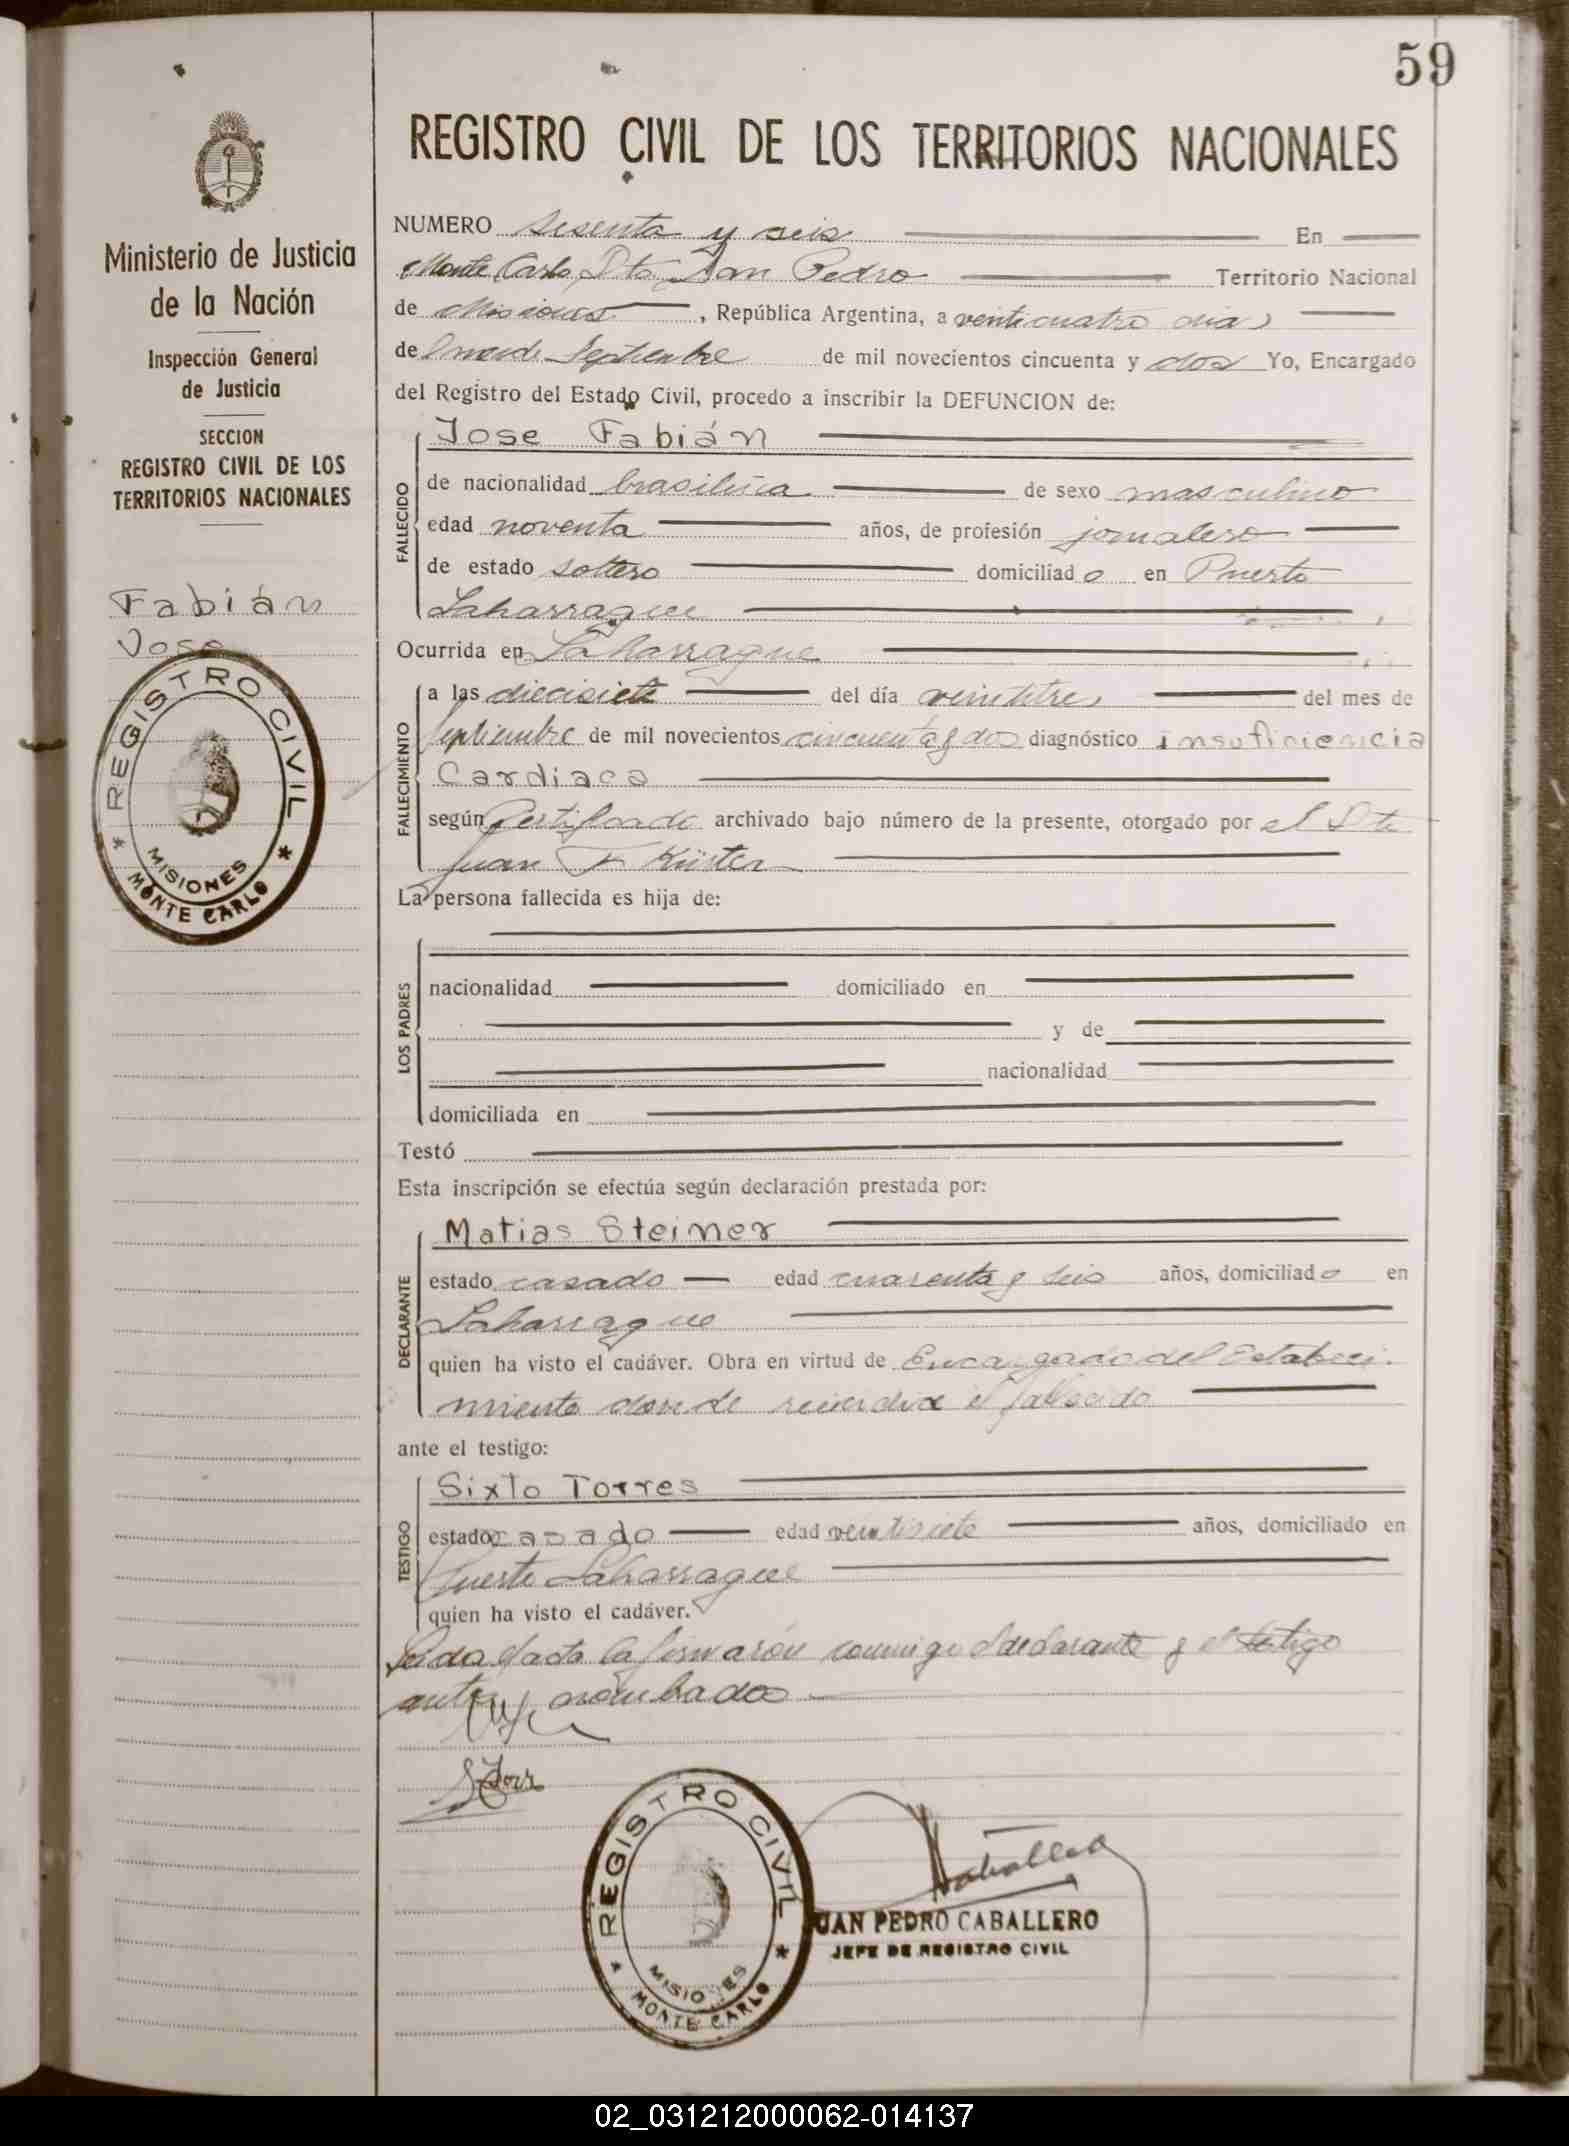 59
REGISTRO CIVIL DE LOS TERRITORIOS NACIONALES
Ministerio de Justicia
de la Nación
Inspección General
de Justicia
SECCION
REGISTRO CIVIL DE LOS
TERRITORIOS NACIONALES
Fabián
Jose
REGISTRO CIVIL
MISIONES
MONTE CARLO
NUMERO sesenta y seis En
Monte Carlo Dto San Pedro Territorio Nacional
de Misiones, República Argentina, a veinticuatro dias
de Septiembre de mil novecientos cincuenta y dos Yo, Encargado
del Registro del Estado Civil, procedo a inscribir la DEFUNCION de:
FALLECIDO
Jose Fabián
de nacionalidad brasilera de sexo masculino
edad noventa años, de profesión jornalero
de estado soltero domiciliado en Puerto
Laharrague
Ocurrida en Laharrague
FALLECIMIENTO
a las diecisiete del día veintitres del mes de
Septiembre de mil novecientos cincuenta y dos diagnóstico insuficiencia
Cardiaca
según Certificado archivado bajo número de la presente, otorgado por el
Juan F. Küster
La persona fallecida es hija de:
LOS PADRES
nacionalidad domiciliado en
y de
nacionalidad
domiciliada en
Testó
Esta inscripción se efectúa según declaración prestada por:
DECLARANTE
Matias Steiner
estado casado edad cuarenta y seis años, domiciliado en
Laharrague
quien ha visto el cadáver. Obra en virtud de Encargado del Estableci-
miento donde el fallecido
ante el testigo:
TESTIGO
Sixto Torres
estado casado edad veintisiete años, domiciliado en
Puerto Laharrague
quien ha visto el cadáver.
Leida el acta la firmarón conmigo el declarante y el testigo
antes nombados
S Torr
REGISTRO CIVIL
MISIONES
MONTE CARLO
Caballero
JUAN PEDRO CABALLERO
JEFE DE REGISTRO CIVIL
02_031212000062-014137